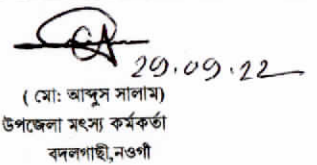 29.09.22
( মো: আব্দুস সালাম)
উপজেলা মৎস্য কর্মকর্তা
বদলগাছী,নওগাঁ